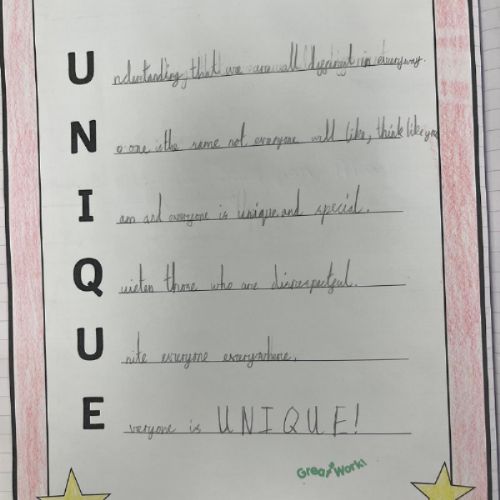 Understanding that we are all different in everyway.
No one is the same not everyone will like, think like you
I am and everyone is unique and special.
Quieten those who are disrespectful.
Unite everyone everywhere.
Everyone is UNIQUE!
Great Work!